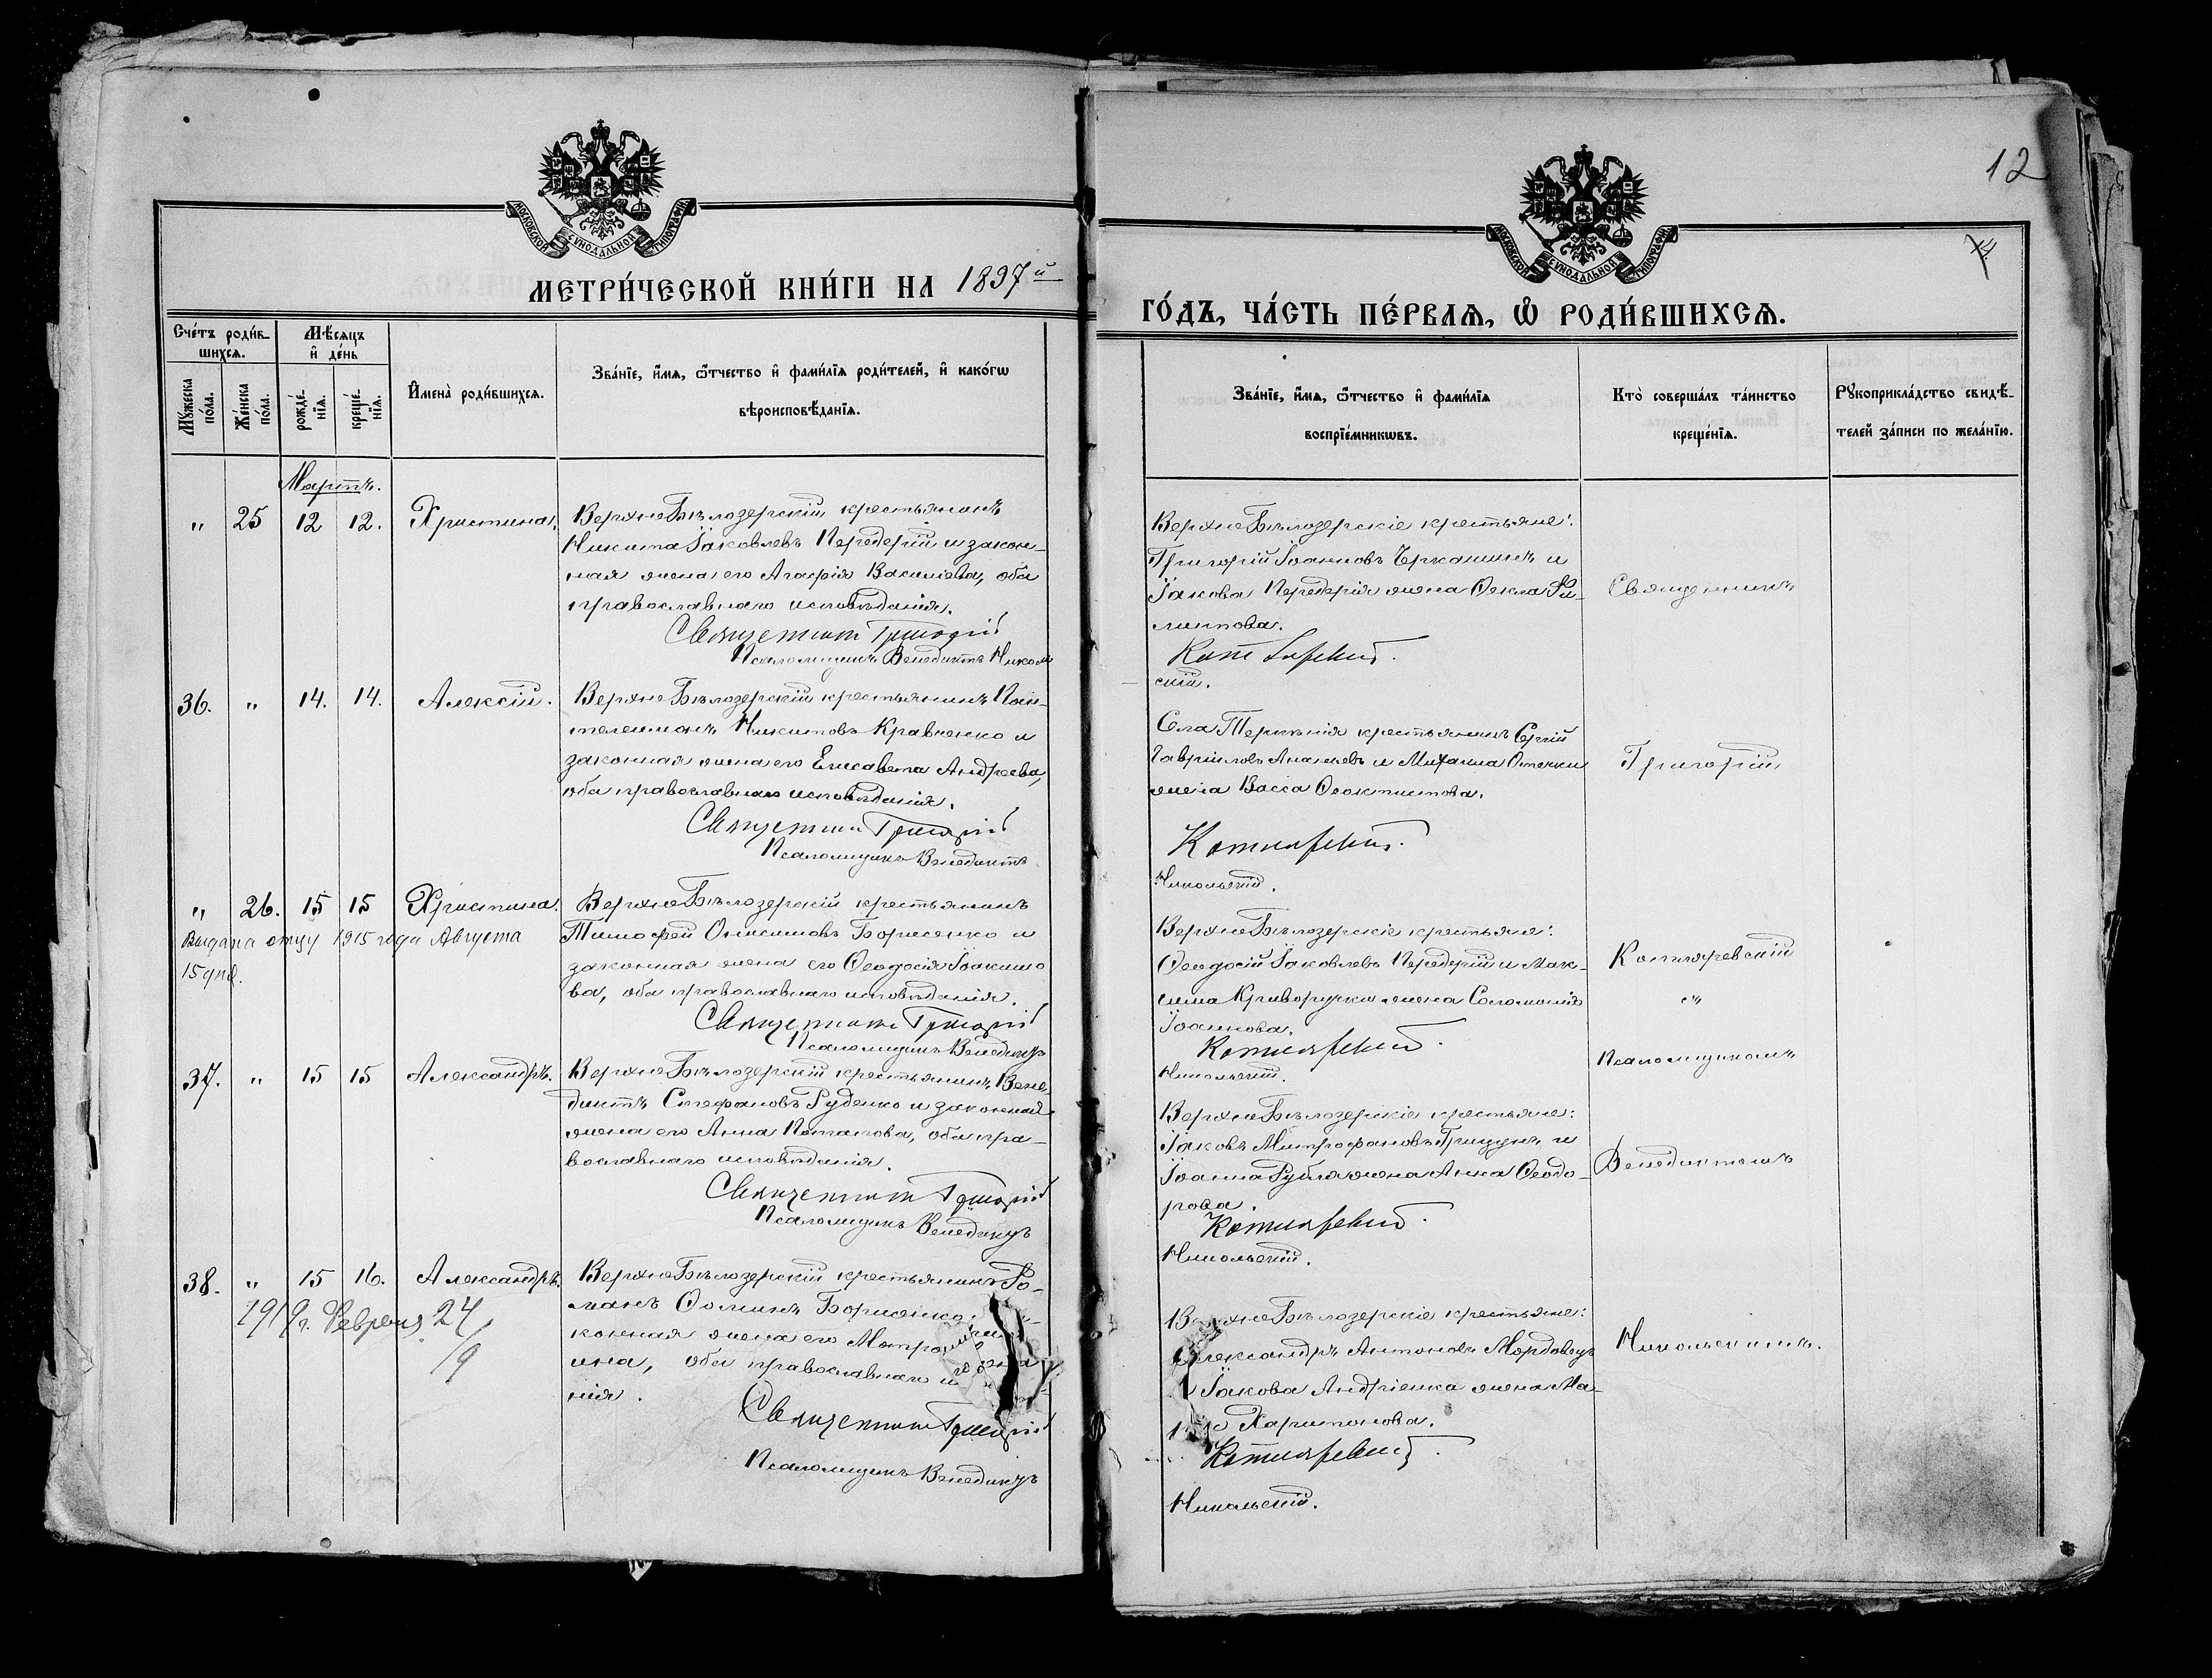 12
14.
МОСКОВСКОЙ СѴНОДАЛЬНОЙ ТИПОГРАФІИ
МОСКОВСКОЙ СѴНОДАЛЬНОЙ ТИПОГРАФІИ
МЕТРИ́ЧЕСКОЙ КНИ́ГИ НА 1897й
ГО́ДЪ, ЧА́СТЬ ПЕ́РВАѦ, Ѡ҆ РОДИ́ВШИХСѦ.
Сче́тъ роди́в-
шихсѧ.
Мѣ́сѧцъ
и҆ де́нь
Мꙋ́жеска по́ла.
Же́нска по́ла.
рожде́-нїѧ.
креще́-нїѧ.
И҆мена̀ роди́вшихсѧ.
Зва́нїе, и҆́мѧ, ѻ҆́тчество и҆ фами́лїѧ роди́телей, и҆ како́гѡ
вѣроисповѣ́данїѧ.
Зва́нїе, и҆́мѧ, ѻ҆́тчество и҆ фами́лїѧ
воспрїе́мникѡвъ.
Кто̀ соверша́лъ та́инство
креще́нїѧ.
Рꙋкоприкла́дство свидѣ́-
телей за́писи по жела́нїю.
Мартъ.
" 25 12 12. Христина.
ВерхнеБѣлозерскій крестьянинъ
Никита Іаковлевъ Передерій и закон-
ная жена его Агафія Василіева, оба
православнаго исповѣданія.
Священникъ Григорій
Псаломщикъ Венедиктъ Николь
ВерхнеБѣлозерскіе крестьяне:
Григорій Іоанновъ и
Іакова Передерія жена Ѳекла Фи-
липпова.
Котляревскій.
скій.
Священникъ
36. " 14. 14. Алексій.
ВерхнеБѣлозерскій крестьянинъ Пан-
телеимонъ Никитовъ Кравченко и
законная жена его Елисавета Андреева,
оба православнаго исповѣданія.
Священникъ Григорій
Псаломщикъ Венедиктъ
Села крестьянинъ Сергій
Гавріиловъ Ананьевъ и Михаила
жена Васса Ѳеоктистова.
Котляревскій.
Никольскій.
Григорій
" 26. 15 15 Христина.
Выдана отцу 1915 года Августа
15 дня.
ВерхнеБѣлозерскій крестьянинъ
Тимофей Онисимовъ Борисенко и
законная жена его Ѳеодосія Іоакимо
ва, оба православнаго исповѣданія.
Священникъ Григорій
Псаломщикъ Венедиктъ
ВерхнеБѣлозерскіе крестьяне:
Ѳеодосій Іаковлевъ Передерій и Мак-
сима Криворучки жена Соломонія
Іоаннова.
Котляревскій.
Никольскій.
Котляревскій
съ
Псаломщикомъ
37. " 15 15 Александръ.
ВерхнеБѣлозерскій крестьянинъ Вене-
диктъ Стефановъ Руденко и законная
жена его Анна Потапова, оба пра-
вославнаго исповѣданія.
Священникъ Григорій
Псаломщикъ Венедиктъ
ВерхнеБѣлозерскіе крестьяне:
Іаковъ Митрофановъ Грицунъ и
Іоанна жена Анна Ѳеодо-
рова.
Котляревскій.
Никольскій.
Венедиктомъ
38. " 15 16. Александръ.
1919г. Февраля 24
/9
ВерхнеБѣлозерскій крестьянинъ Ро-
манъ Ѳоминъ Борисенко
конная жена его
ина, оба православнаго
нія.
Священникъ Григорій
Псаломщикъ Венедиктъ
ВерхнеБѣлозерскіе крестьяне:
Александръ Антоновъ Мордовецъ
Іакова Андріенка жена Ма-
Харитонова.
Котляревскій.
Никольскій.
Никольскимъ.